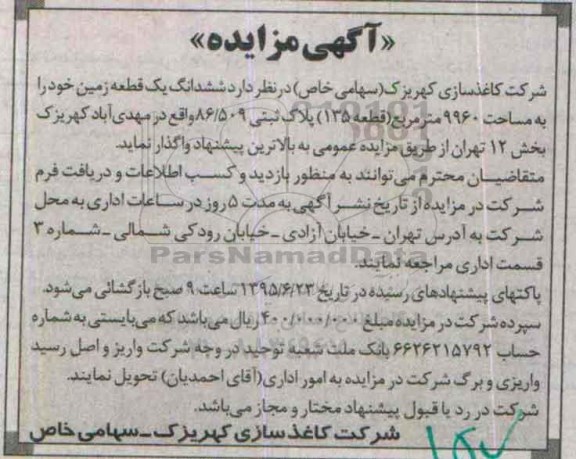 «آگهی مزایده»
شرکت کاغذسازی کهریزک(سهامی خاص) در نظر دارد ششدانگ یک قطعه زمین خود را
به مساحت ۹۹۶۰ مترمربع(قطعه ۱۳۵) پلاک ثبتی ۸۶/۵۰۹ واقع در مهدی‌آباد کهریزک
بخش ۱۲ تهران از طریق مزایده عمومی به بالاترین پیشنهاد واگذار نماید.
متقاضیان محترم می‌توانند به منظور بازدید و کسب اطلاعات و دریافت فرم
شرکت در مزایده از تاریخ نشر آگهی به مدت ۵ روز در ساعات اداری به محل
شرکت به آدرس تهران ـ خیابان آزادی ـ خیابان رودکی شمالی ـ شماره ۳
قسمت اداری مراجعه نمایند.
ParsNamadData
پاکتهای پیشنهادهای رسیده در تاریخ ۱۳۹۵/۶/۲۳ ساعت ۹ صبح بازگشائی می‌شود.
سپرده شرکت در مزایده مبلغ ۴۰۰/۰۰۰/۰۰۰ ریال می‌باشد که می‌بایستی به شماره
حساب ۶۶۲۶۲۱۵۷۹۲ بانک ملت شعبه توحید در وجه شرکت واریز و اصل رسید
واریزی و برگ شرکت در مزایده به امور اداری(آقای احمدیان) تحویل نمایند.
شرکت در رد یا قبول پیشنهاد مختار و مجاز می‌باشد.
شرکت کاغذسازی کهریزک ـ سهامی خاص